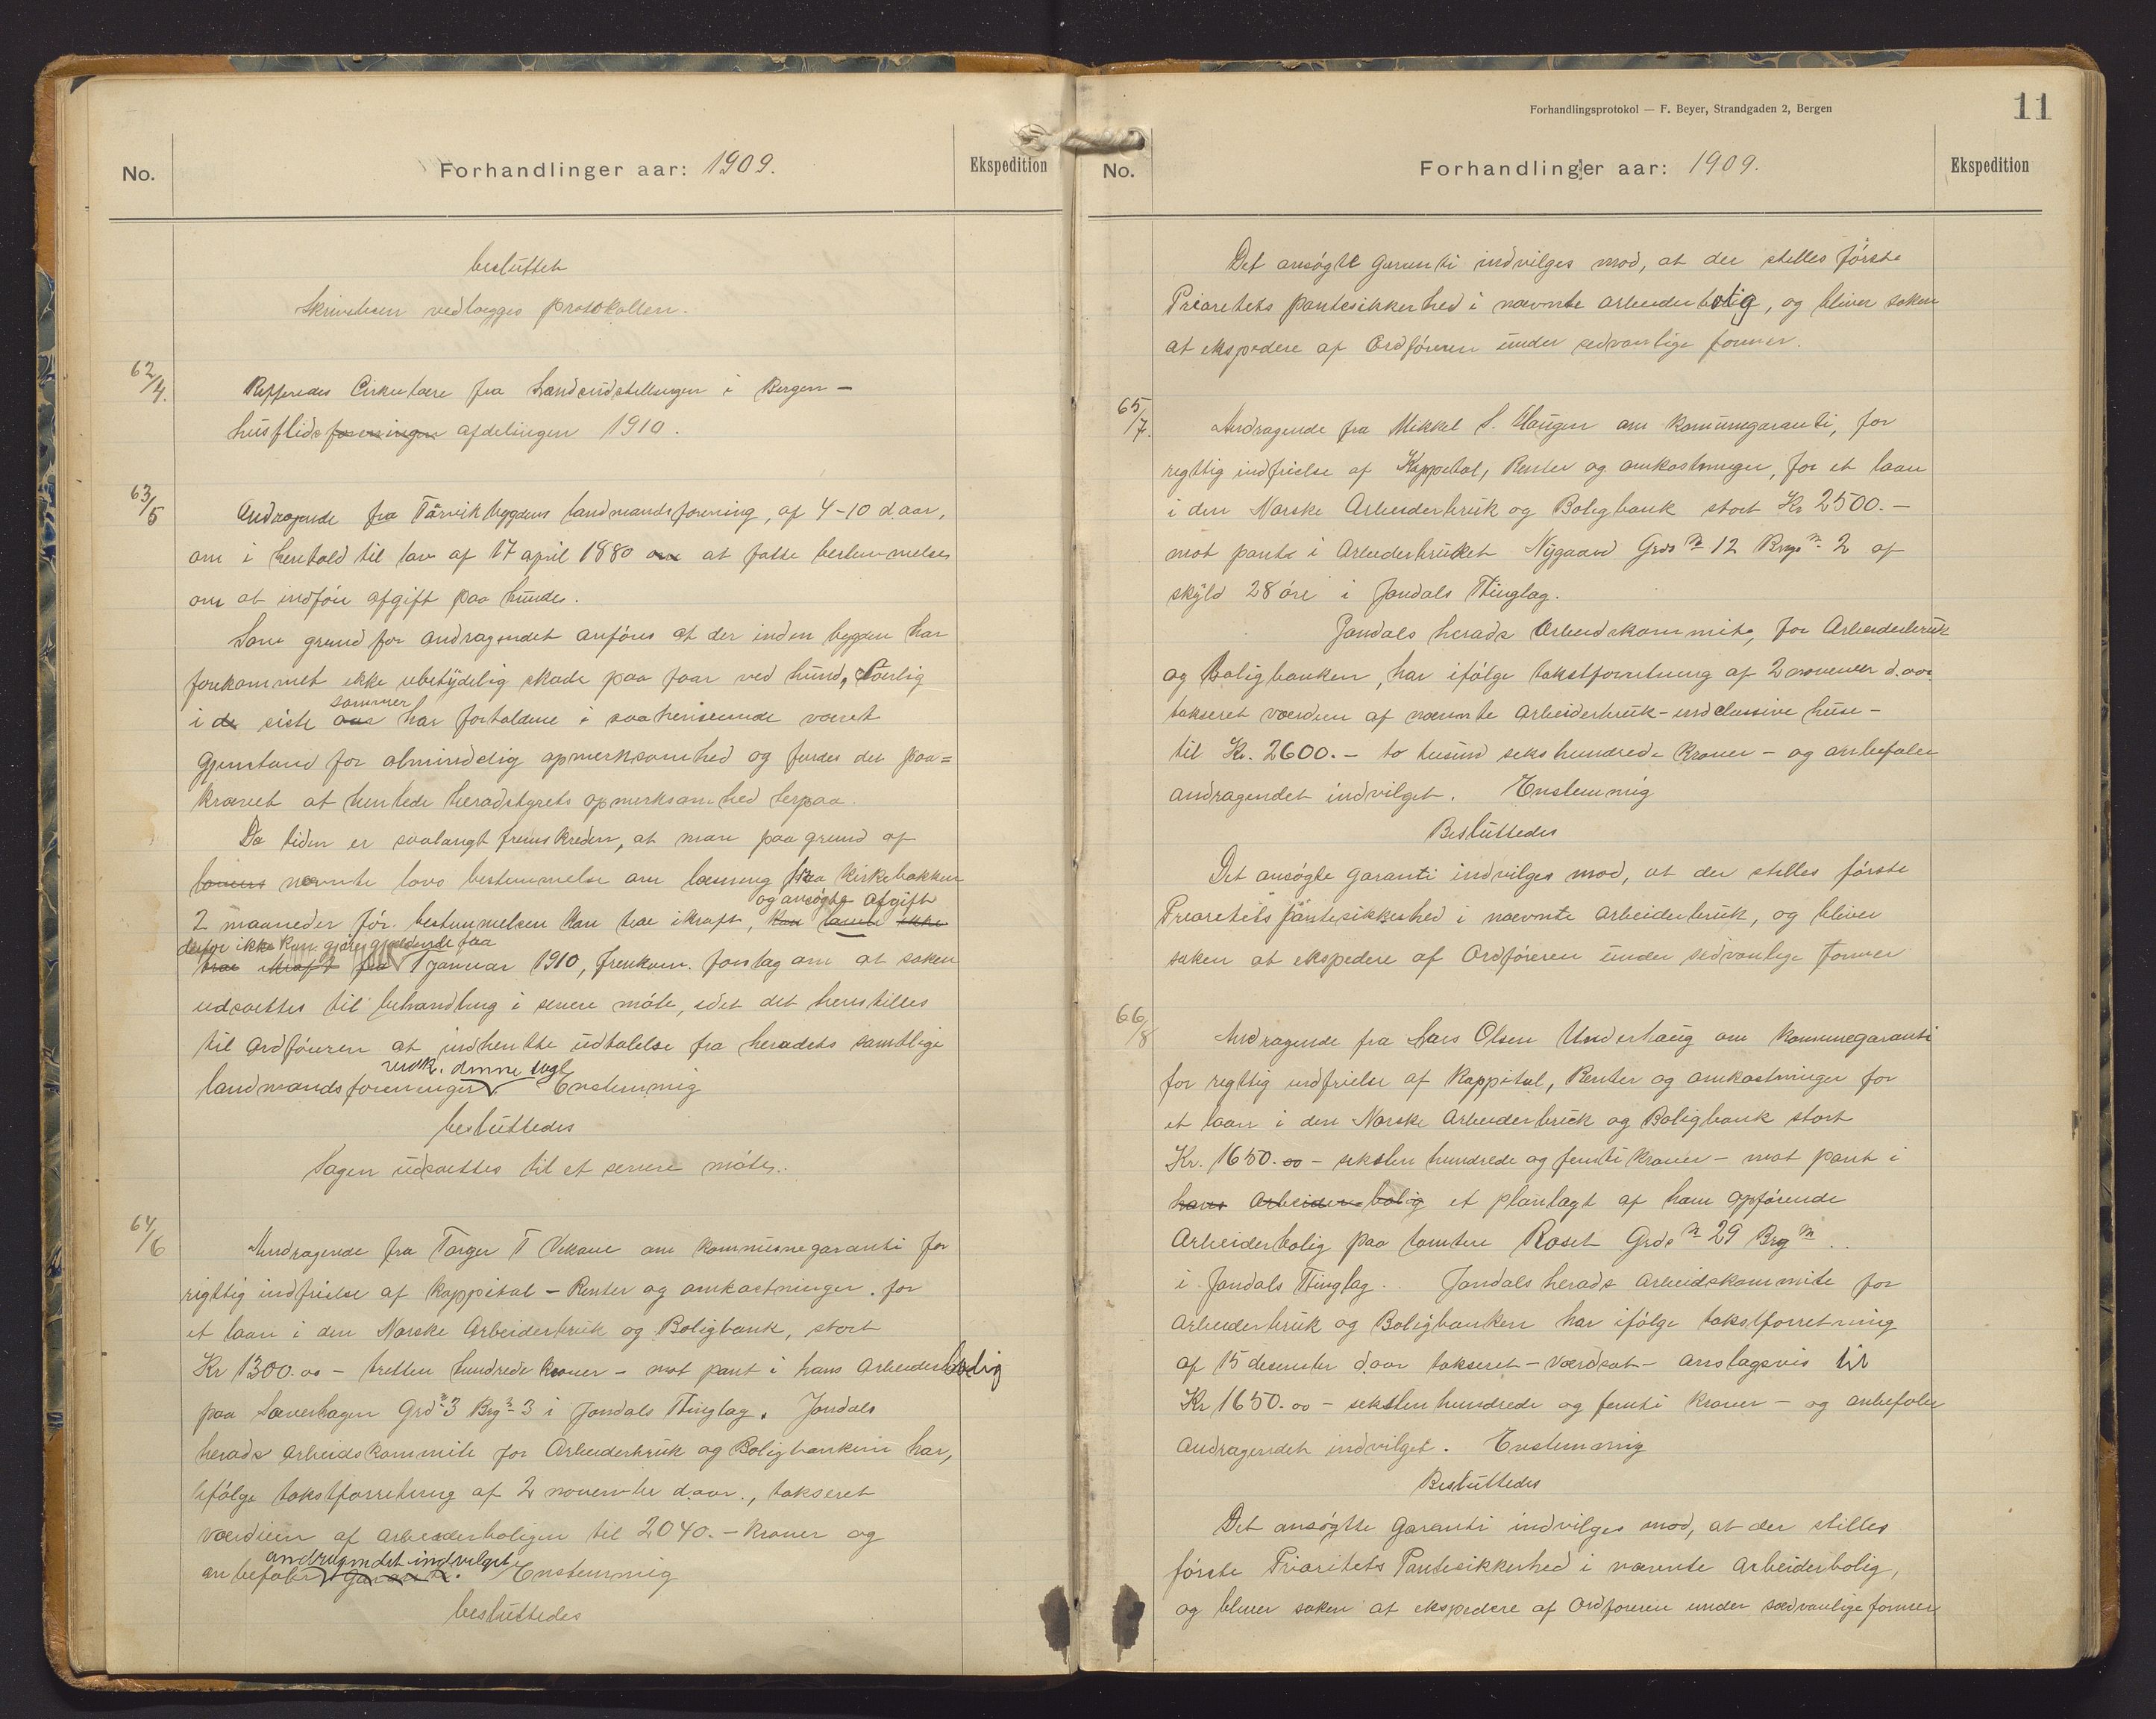 No.
Forhandlinger aar: 1909.
Ekspedition
besluttet
Skrivelsen vedlægges protokollen.
62/4.
Refferedes Cirkulære fra Landsudstillingen i Bergen —
husflids foreningen afdelingen 1910.
63/5
Andragende fra Tørvikbygdens landmandsforening, af 4-10 d. aar,
om i henhold til lov af 17 april 1880 om at fatte bestemmelse
om at indføre afgift paa hunde.
Som grund for andragendet anføres at der inden bygden har
forekommet ikke ubetydelig skade paa faar ved hund, særlig
sommer
i de siste aar har forholdene i saa henseende været
gjenstand for almindelig opmerksomhed og findes det paa=
krævet at henlede heradstyrets opmerksomhed herpaa.
Da tiden er saalangt fremskreden, at man paa grund af
lovens nævnte lovs bestemmelse om læsning fra kirkebakken
og ansøgte afgift
2 maaneder før bestemmelsen kan træ ikraft, kan ikke
derfor ikke kan gjøres gjældende fra
træ ikraft fra 1 januar 1910, fremkom forslag om at saken
udsættes til behandling i senere møte, idet det henstilles
til ordføreren at indhente udtalelse fra heradets samtlige
vedk. denne sag
landmandsforeninger. Enstemmig
besluttedes
Sagen udsættes til et senere møte.
64/6
Andragende fra Torger T Vikane om kommunegaranti for
rigttig indfrielse af Kappital – Renter og omkostninger. for
et laan i den Norske Arbeiderbruk og Boligbank, stort
Kr 1300.00 – tretten hundrede kroner – mot pant i hans Arbeiderbolig
paa Løverhagen Grd n 3 Brg n 3 i Jondals Thinglag. Jondals
herads Arbeidskommite for Arbeiderbruk og Boligbanken har,
ifølge takstforretning af 2 november d. aar., takseret
værdien af arbeiderboligen til 2040.– kroner og
andragendet indvilget
anbefaler Garanti. Enstemmig
besluttedes
Forhandlingsprotokol — F. Beyer, Strandgaden 2, Bergen
11
No.
Forhandlinger aar: 1909.
Ekspedition
Det ansøgte garenti indvilges mod, at der stilles første
Prioretets pantesikkerhed i nævnte arbeiderbolig, og bliver saken
at ekspedere af Ordføreren under sedvanlige former.
65/7.
Andragende fra Mikkel S. Haugen om komunegaranti, for
regttig indfrielse af Kappital, Renter og omkostninger, for et laan
i den Norske Arbeiderbruk og Boligbank stort Kr 2500.–
mot pante i Arbeiderbruket Nygaard Grds n 12 Brugs n 2 af
skyld 28 øre i Jondals Thinglag.
Jondals herads Arbeidskommite, for Arbeiderbruk
og Boligbanken, har ifølge takstforretning af 2 november d. aar
takseret værdien af nævnte Arbeiderbruk – indclussive huse –
til Kr. 2600.– to tusind seks hundrede kroner – og anbefaler
andragendet indvilget. Enstemmig
Besluttedes
Det ansøgte garanti indvilges mod, at der stilles første
Prioretets pantesikkerhed i nævnte arbeiderbruk, og bliver
saken at ekspedere af Ordføreren under sedvanlige former
66/8
Andragende fra Lars Olsen Underhaug om kommunegaranti
for regttig indfrielse af Kappital, Renter og omkostninger for
et laan i den Norske Arbeiderbruk og Boligbank stort
Kr. 1650.00 – seksten hundrede og femti kroner – mot pant i
hans Arbeiderbolig et planlagt af ham opførende
Arbeiderbolig paa tomten Roset Grds n 29 Brg n ..
i Jondals Thinglag. Jondals herads Arbeidskommite for
Arbeiderbruk og Boligbanken har ifølge takstforretning
af 15 desember d. aar takseret – værdsat – anslagsvis til
Kr 1650.00 – seksten hundrede og femti kroner – og anbefaler
Andragendet indvilget. Enstemmig
Besluttedes
Det ansøgtte Garanti indvilges mod, at der stilles
første Prioritets Pantesikkerhed i nævnte Arbeiderbolig,
og bliver saken at ekspedere af Ordføreren under sædvanlige former